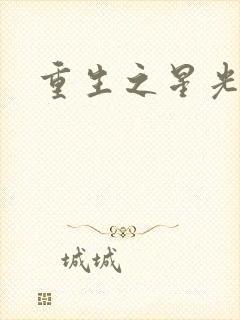 重生之星光
城城